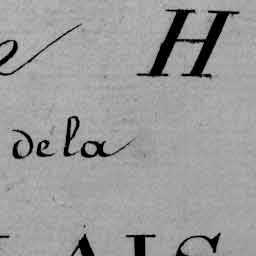 H
de la
AIS